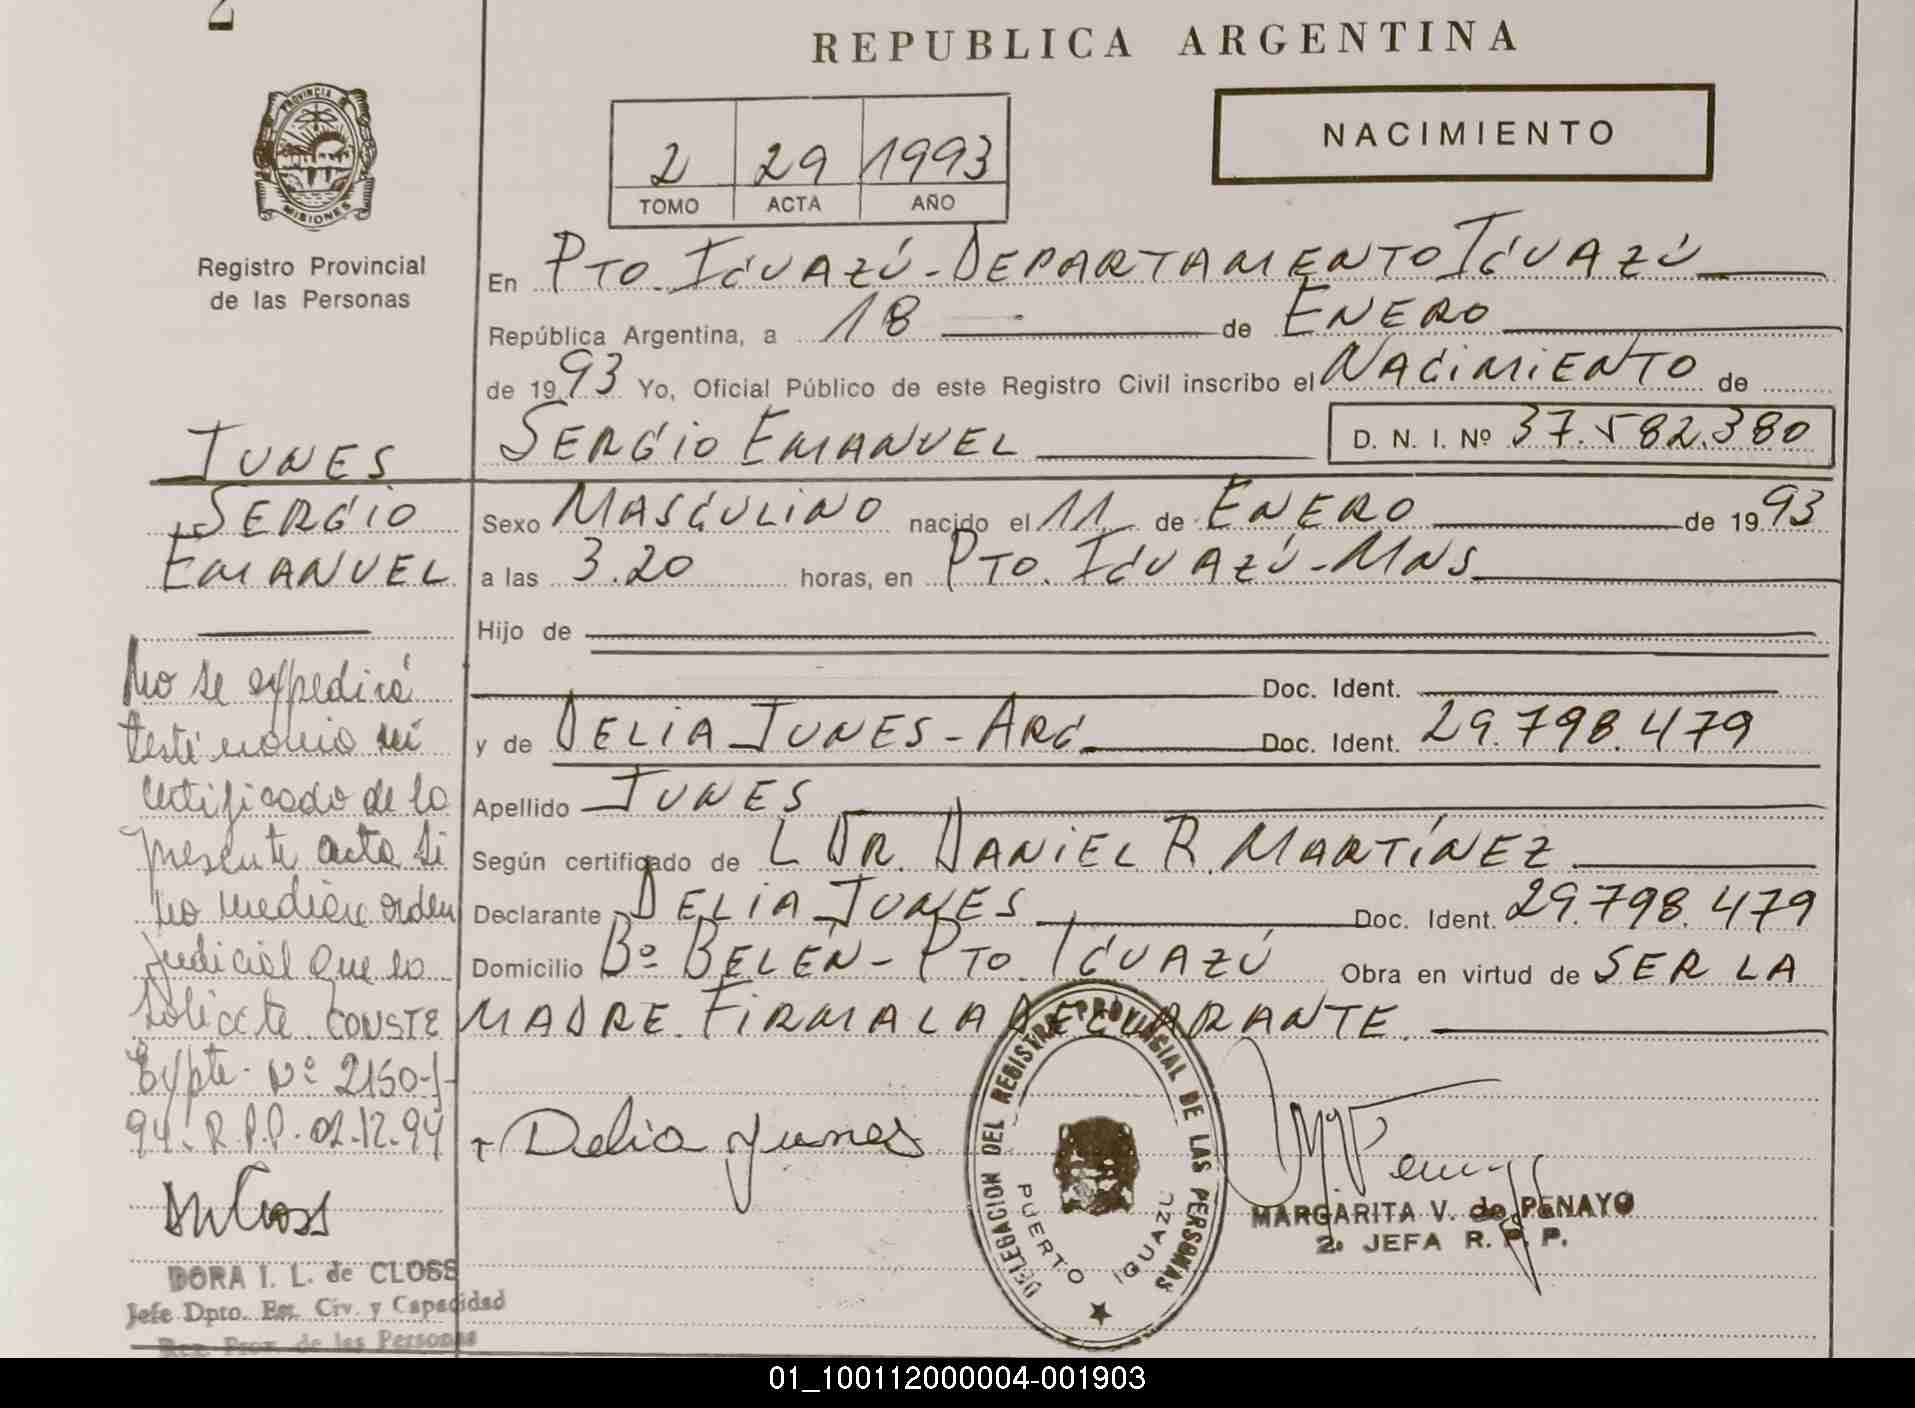 2
REPUBLICA ARGENTINA
PROVINCIA DE
MISIONES
Registro Provincial
de las Personas
2 29 1993
TOMO ACTA AÑO
NACIMIENTO
En PTO. IGUAZÚ - DEPARTAMENTO IGUAZÚ
República Argentina, a 18 de ENERO
de 1993 Yo, Oficial Público de este Registro Civil inscribo el NACIMIENTO de
SERGIO EMANUEL D. N. I. Nº 37.582.380
Sexo MASCULINO nacido el 11 de ENERO de 1993
a las 3.20 horas, en PTO. IGUAZÚ - MNS
Hijo de
Doc. Ident.
y de DELIA JUNES - ARG. Doc. Ident. 29.798.479
Apellido JUNES
Según certificado de L DR. DANIEL R. MARTÍNEZ
Declarante DELIA JUNES Doc. Ident. 29.798.479
Domicilio Bº BELÉN - PTO. IGUAZÚ Obra en virtud de SER LA
MADRE. FIRMA LA DECLARANTE.
JUNES
SERGIO
EMANUEL
No se expedirá
testimonio ni
certificado de la
presente acta si
no median orden
judicial que lo
solicite. CONSTE
Expte. Nº 2150-/-
94. R.P.P. 02.12.94
DORA I. L. de CLOSS
Jefe Dpto. Est. Civ. y Capacidad
Reg. Prov. de las Personas
Delia Junes
DELEGACION DEL REGISTRO PROVINCIAL DE LAS PERSONAS
PUERTO IGUAZU
MARGARITA V. de PENAYO
2º JEFA R. P. P.
01_100112000004-001903